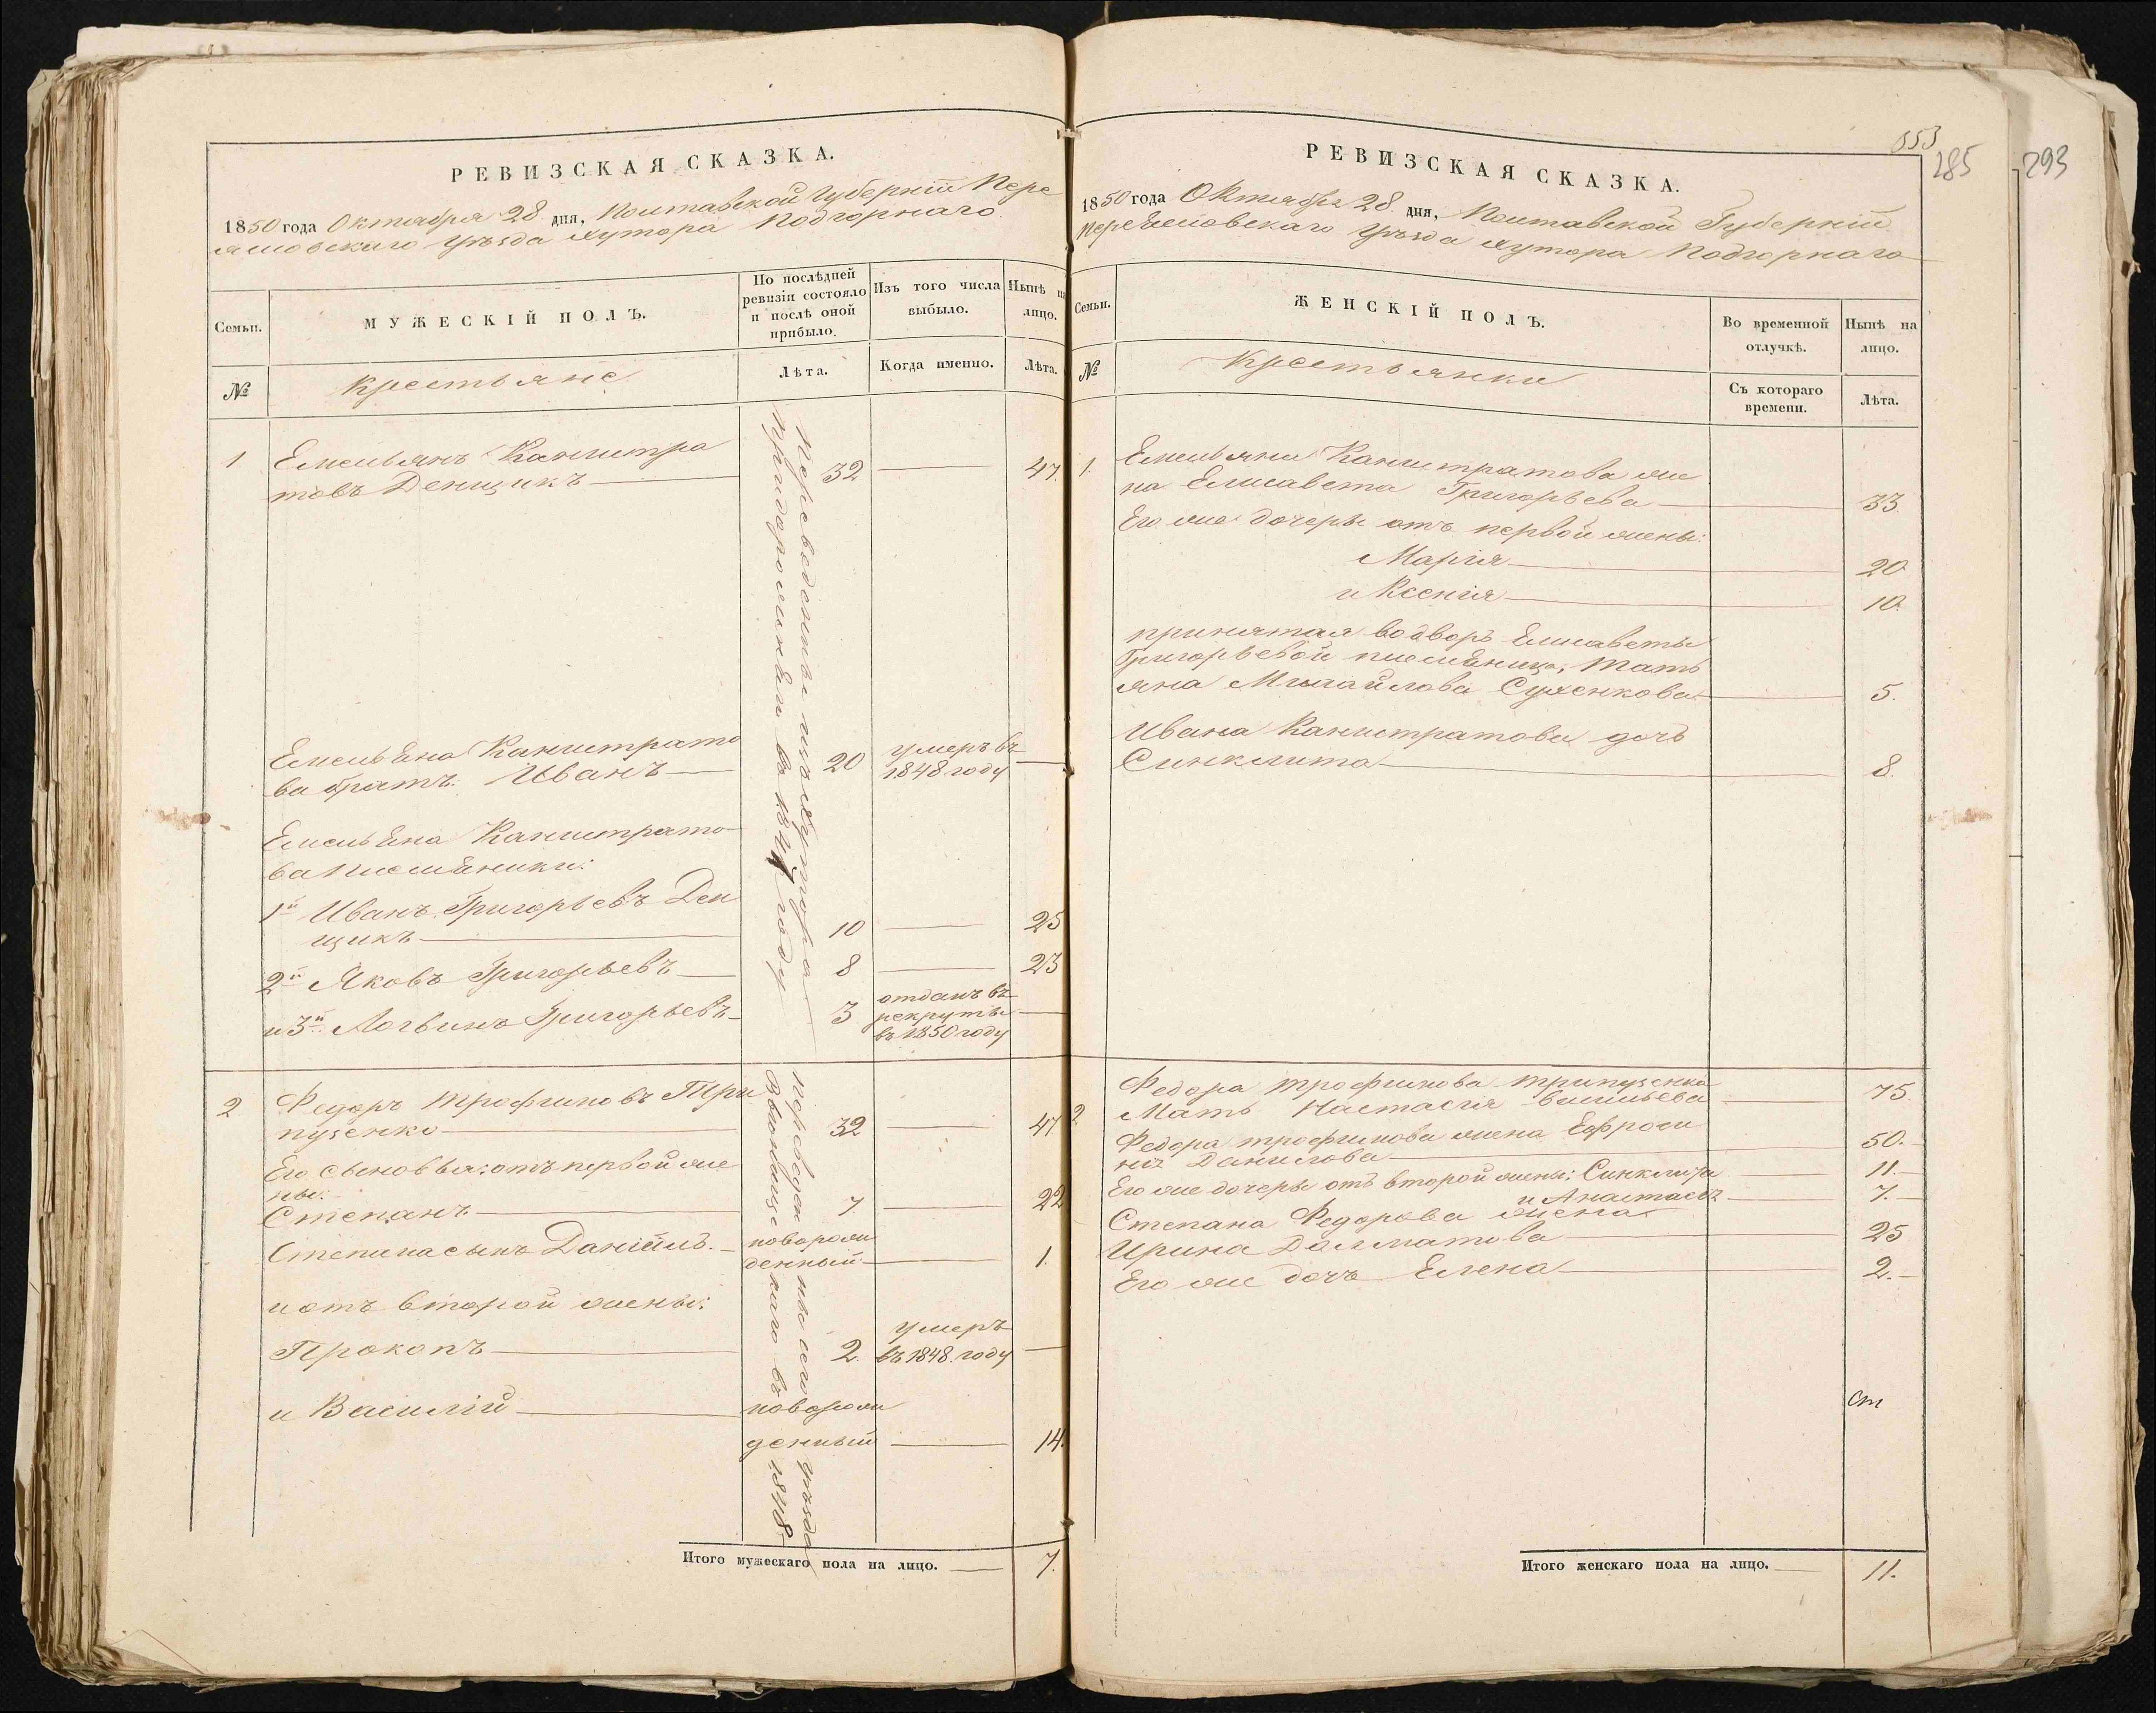 РЕВИЗСКАЯ СКАЗКА.
1850 года Октября 28 дня, Полтавской Губерніи Пере
яславскаго уѣзда хутора Подгорнаго.
Семьи.
МУЖЕСКІЙ ПОЛЪ.
По послѣдней
ревизіи состояло
и послѣ оной
прибыло.
Изъ того числа
выбыло.
Нынѣ на
лицо.
№
Крестьяне
Лѣта.
Когда именно.
Лѣта.
1
Емельянъ Канистра
товъ Денщикъ
32
47.
Емельяна Канистрато
ва братъ Иванъ
20
умеръ въ
1848 году
Емельяна Канистрато
ва племяники:
1й Иванъ Григорьевъ Ден
щикъ
10
25
2й Яковъ Григорьевъ
8
23
и 3й Логвинъ Григорьевъ
3
отданъ въ
рекруты
въ 1850 году
Переведены изъ хутора
году
2
Федоръ Трофимовъ Три
пузенко
32
47
Его сыновья: отъ первой же
ны:
Степанъ
7.
22
Степана сынъ Даніилъ.
новорож
денный
1.
и отъ второй жены:
Прокопъ
2.
умеръ
въ 1848. году
и Василій
новорож
денный
14.
уѣзда
въ 1848
Итого мужескаго пола на лицо.
7.
353
285
293
РЕВИЗСКАЯ СКАЗКА.
1850 года Октября 28 дня, Полтавской Губерніи
Переяславскаго уѣзда хутора Подгорнаго
Семьи.
ЖЕНСКІЙ ПОЛЪ.
Во временной
отлучкѣ.
Нынѣ на
лицо.
№
Крестьянки
Съ котораго
времени.
Лѣта.
1.
Емельяна Канистратова же
на Елисавета Григорьева
33.
Его же дочери отъ первой жены:
Марія
20.
и Ксенія
10.
принятая во дворъ Елисаветы
Григорьевой племяница, Тать
яна Михайлова Сухенкова
5.
Ивана Канистратова дочь
Синклита
8.
2
Федора Трофимова Трипузенка
Мать Настасія Васильева
75.
Федора Трофимова жена Ефроси
нія Данилова
50.
Его же дочери отъ второй жены: Синклита
11.
и Анастасія
7.
Степана Федорова жена
Ирина Далматова
25
Его же дочь Елена
2.
ст
Итого женскаго пола на лицо.
11.